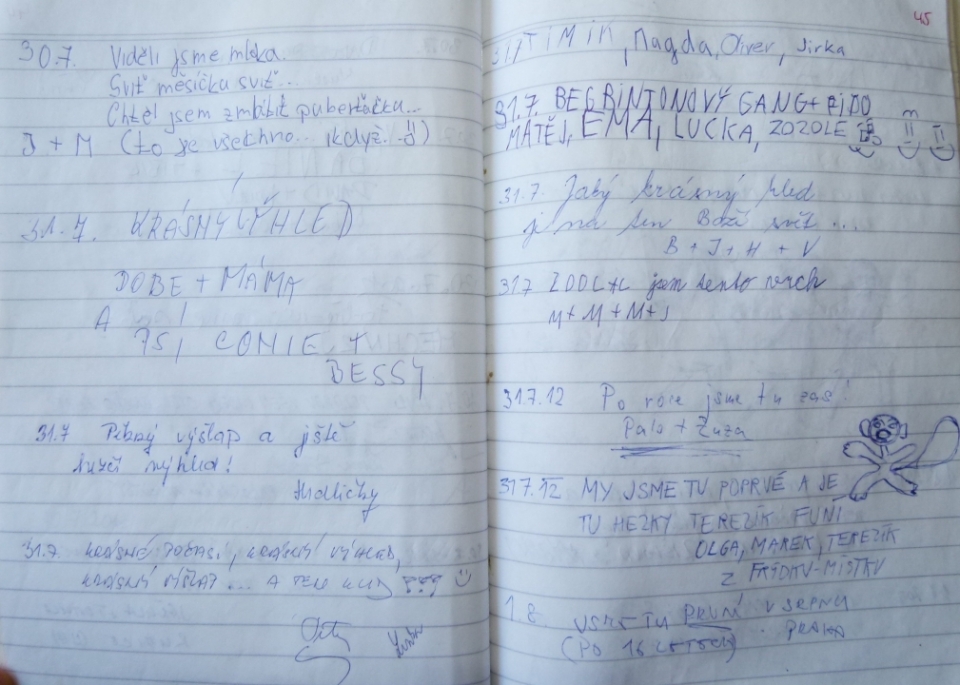 30.7. Viděli jsme mléka.
Sviť měsíčku sviť..
Chtěl jsem puberťačku...
J + M (to je všechno.. když..)
31.7. KRÁSNÝ VÝHLED
DOBE + MÁMA
A
PS, CONIE, +
BESSY
31.7 Pěkný výšlap a jště
výhled!
Hrdličky
31.7. KRÁSNÉ POČASÍ, KRÁSNÝ VÝHLED,
KRÁSNÝ VÝŠLAP ... A TEĎ KUDY ???
45
31.7 TIMIK, Magda, Oliver, Jirka
31.7. BEGBINTONOVÝ GANG +
MATĚJ, EMA, LUCKA, ZOZOLE
31.7. Jaký krásný hled
je na ten Boží svět ...
B + J + H + V
31.7 ZDOLALI jsem tento vrch
M + M + M + J
31.7.12 Po roce jsme tu zas!
Palo + Zuza
31.7.12 MY JSME TU POPRVÉ A JE
TU HEZKY TEREZÍK FUNÍ
OLGA, MAREK, TEREZÍK
Z FRÝDKU-MÍSTKU
1.8. JSME TU PRVNÍ V SRPNU
(PO 16 LETECH) PRAHA